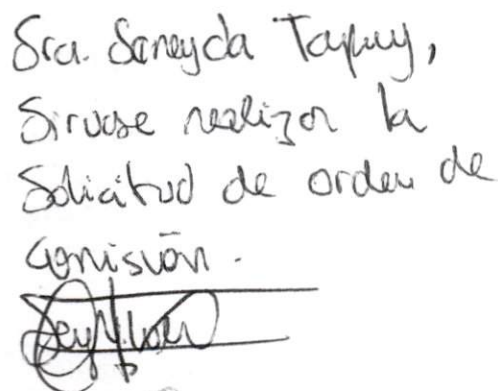 Sra. Saneyda Tapuy,
Sirvase realizar la
Solicitud de orden de
comisión.